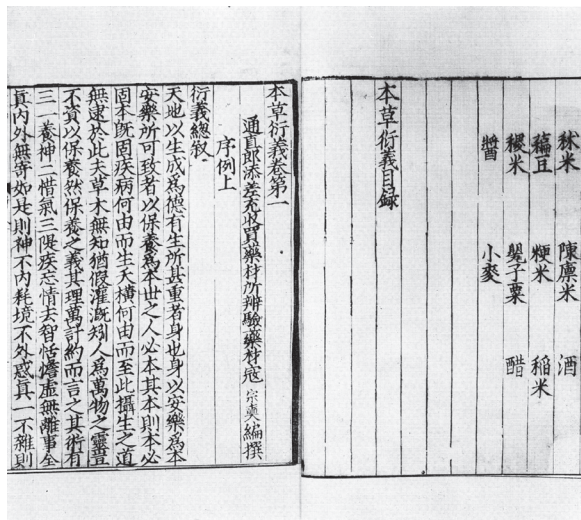 秫米 陳廩米 酒
穭豆 粳米 稻米
稷米 甖子粟 醋
醬 小麥
本草衍義目錄
本草衍義卷第一
通直郎添差充收買藥材所辨驗藥材寇宗奭編撰
序例上
衍義總敘
天地以生成爲德有生所甚重者身也身以安樂爲本
安樂所可致者以保養爲本世之人必本其本則本必
固本旣固疾病何由而生夭橫何由而至此攝生之道
無逮於此夫草木無知猶假灌漑矧人爲萬物之靈豈
不資以保養然保養之義其理萬計約而言之其術有
三一養神二惜氣三隄疾忘情去智恬憺虛無離事全
眞內外無寄如是則神不內耗境不外惑眞一不雜則